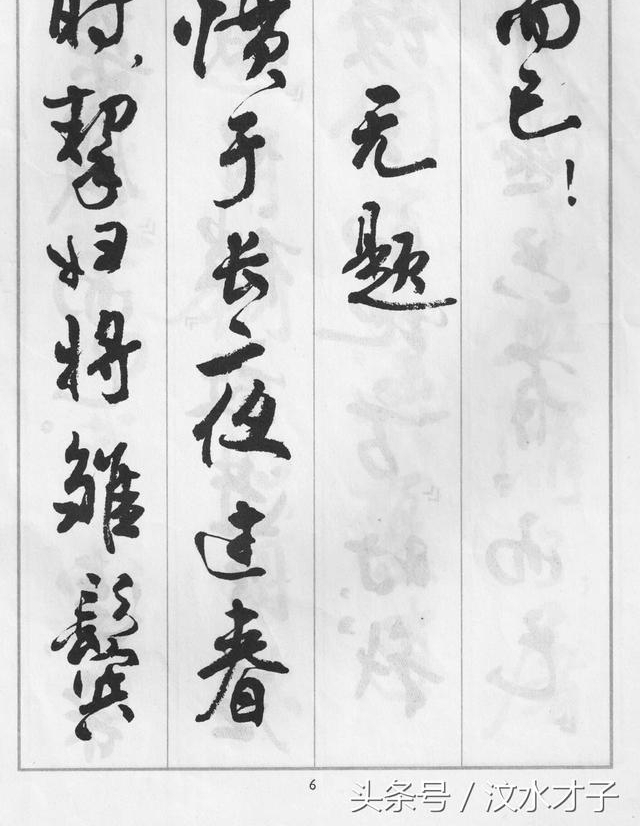 而已!
无题
惯于长夜过春
时,挈妇将雏鬓
6
头条号 / 汶水才子